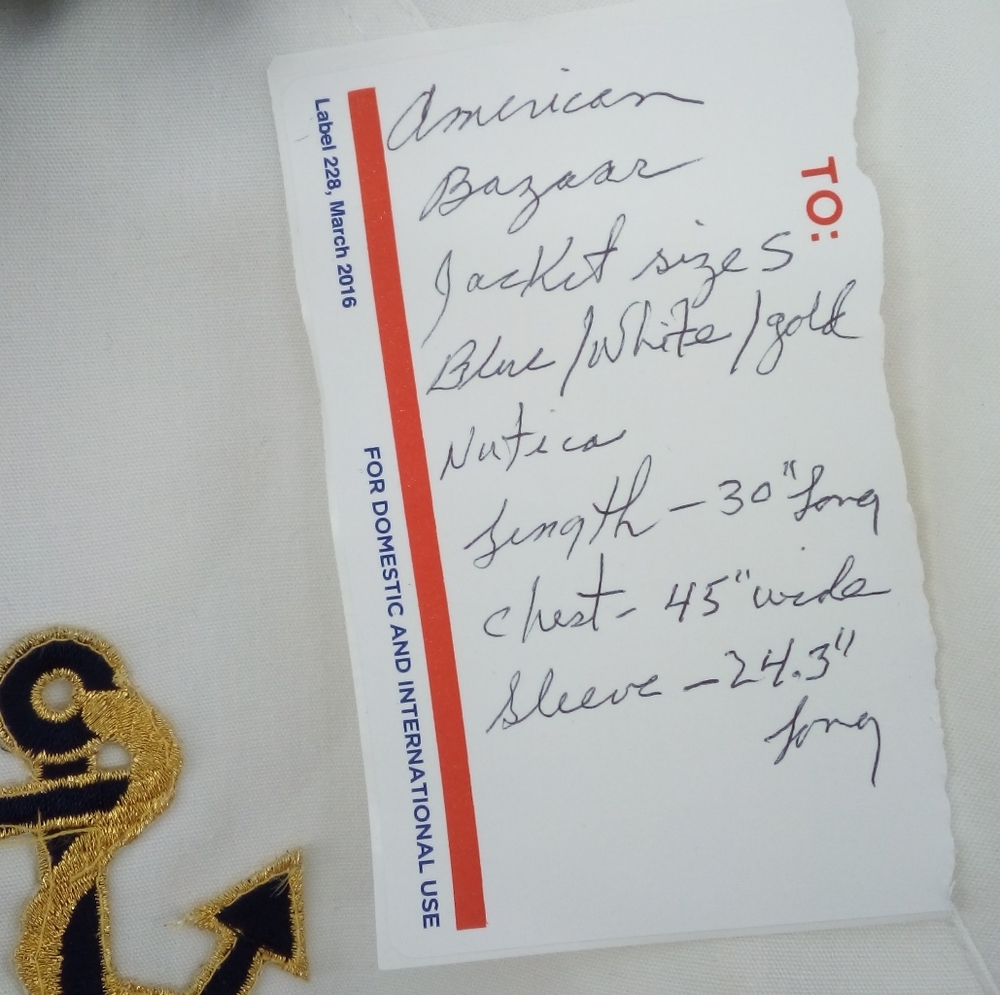 American
Bazaar
Jacket size S
Blue/White/gold
Nutica
Length - 30" Long
Chest - 45" wide
Sleeve - 24.3"
Long
TO:
Label 228, March 2016
FOR DOMESTIC AND INTERNATIONAL USE